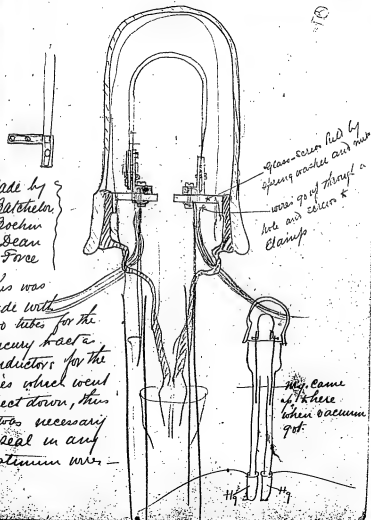 ade by
Batchelor
Boehm
Dean
Force
his was
ade with
o tubes for the
rcury to act as
nductors for the
es which went
ect down, thus
was necessary
seal in any
atinum wires —
glass-screw held by
spring washer and nut
wires go up through a
hole and
clamps
Hg. came
up to here
when vacuum
got.
Hg
Hg